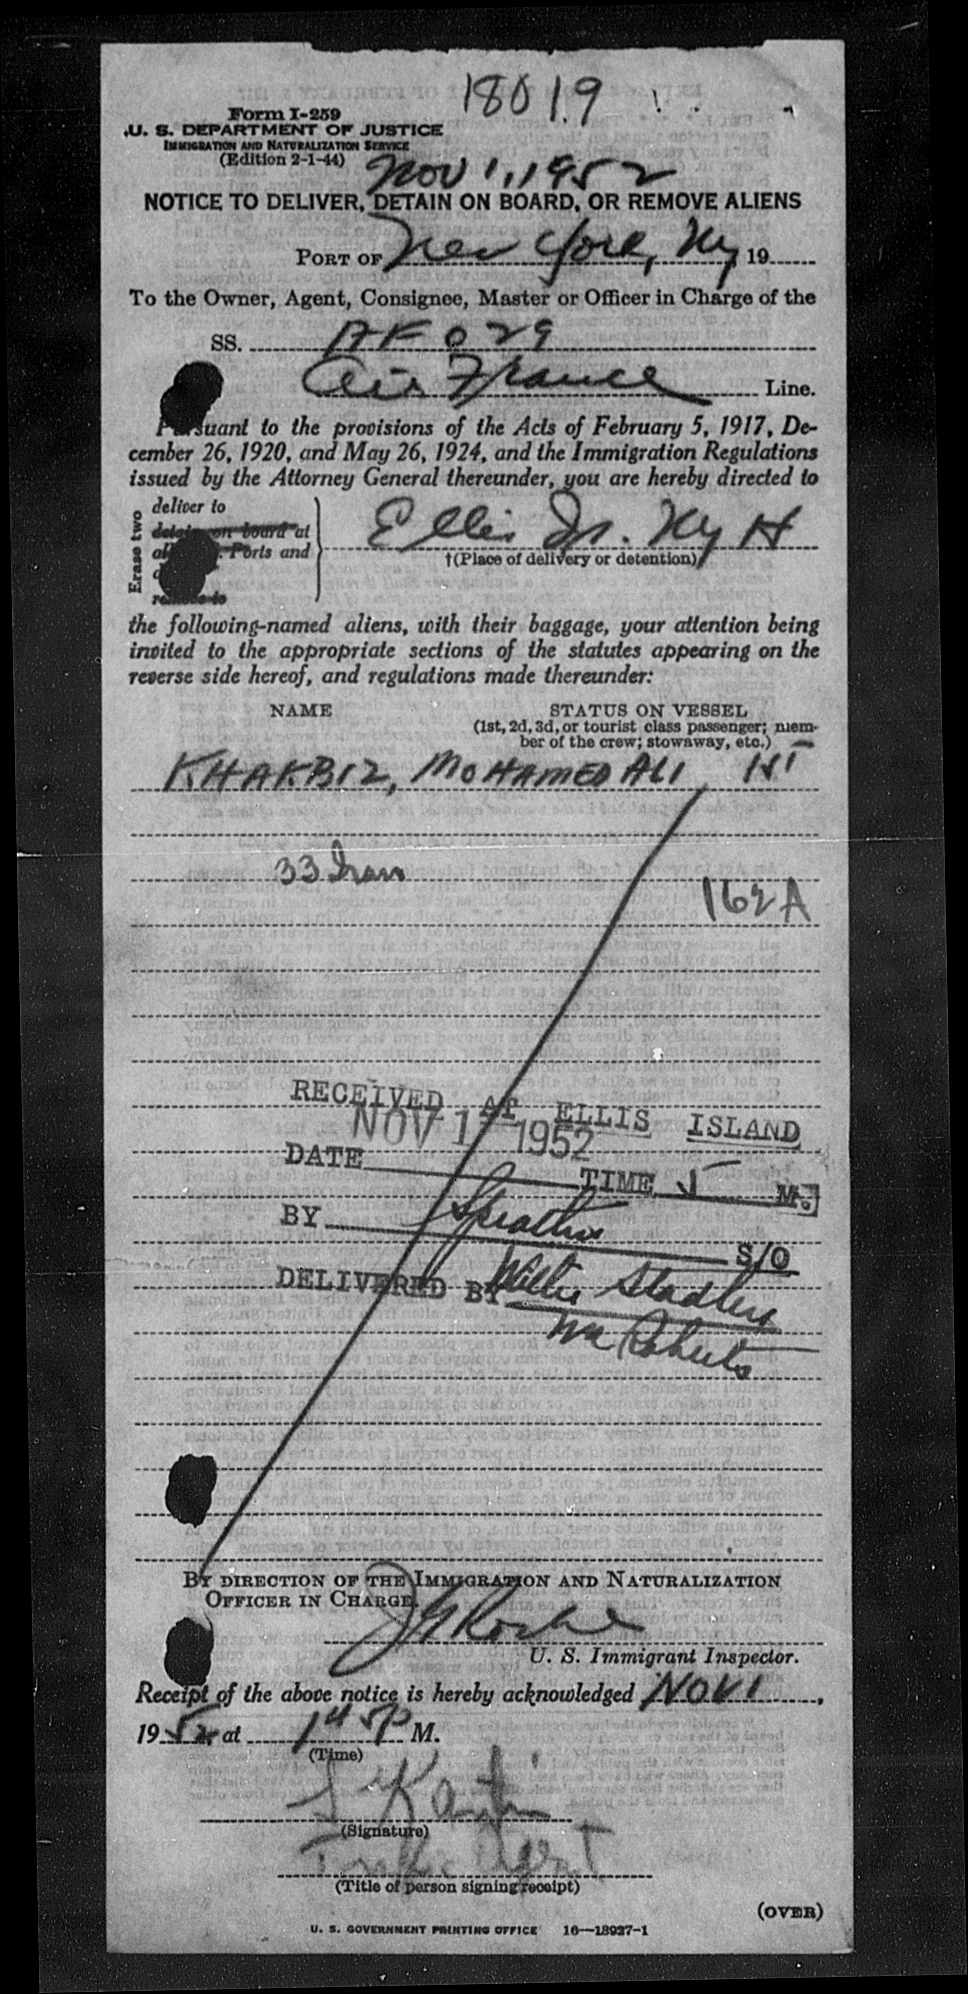 18019
Form I-259
U. S. DEPARTMENT OF JUSTICE
IMMIGRATION AND NATURALIZATION SERVICE
(Edition 2-1-44)
Nov 1, 1952
NOTICE TO DELIVER, DETAIN ON BOARD, OR REMOVE ALIENS
PORT OF New York, Ny 19
To the Owner, Agent, Consignee, Master or Officer in Charge of the
SS. AF 029
Air France Line.
Pursuant to the provisions of the Acts of February 5, 1917, De-
cember 26, 1920, and May 26, 1924, and the Immigration Regulations
issued by the Attorney General thereunder, you are hereby directed to
Erase two
deliver to
detain on board at
Ports and
remove to
Ellis Is. Ny H
†(Place of delivery or detention)
the following-named aliens, with their baggage, your attention being
invited to the appropriate sections of the statutes appearing on the
reverse side hereof, and regulations made thereunder:
NAME STATUS ON VESSEL
(1st, 2d, 3d, or tourist class passenger; mem-
ber of the crew; stowaway, etc.)
KHAKBIZ, MOHAMED ALI
33 Iran
162 A
RECEIVED AT ELLIS ISLAND
NOV 1 1952
DATE TIME 5 M.
BY S/O
DELIVERED BY Willie Stadler
Wm Roberts
BY DIRECTION OF THE IMMIGRATION AND NATURALIZATION
OFFICER IN CHARGE.
U. S. Immigrant Inspector.
Receipt of the above notice is hereby acknowledged NOV 1,
1952 at 1 45 P M.
(Time)
(Signature)
Traffic Agent
(Title of person signing receipt)
(OVER)
U. S. GOVERNMENT PRINTING OFFICE 16—18927-1